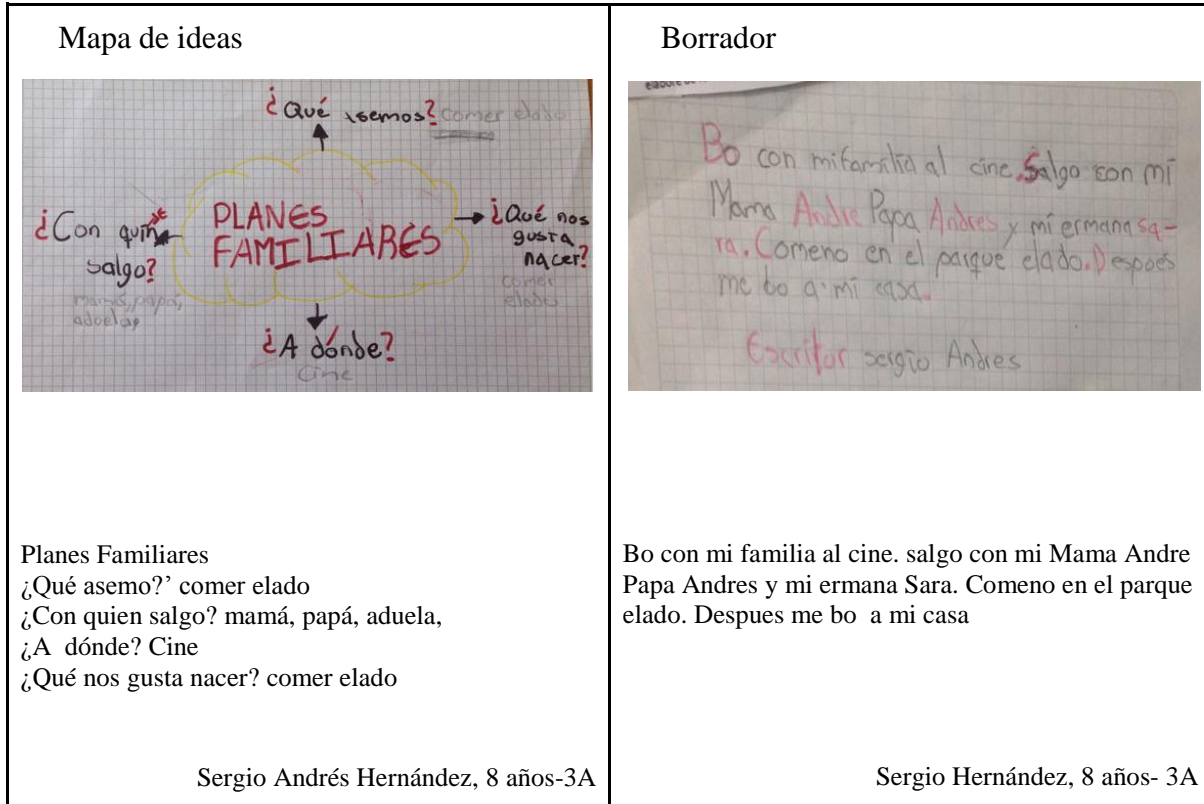 Mapa de ideas
¿Qué asemos? comer elado
¿Con quin
salgo?
mamá, papá,
aduelas
PLANES
FAMILIARES
¿Qué nos
gusta
nacer?
comer
elado
¿A dónde?
Cine
Planes Familiares
¿Qué asemo?’ comer elado
¿Con quien salgo? mamá, papá, aduela,
¿A dónde? Cine
¿Qué nos gusta nacer? comer elado
Sergio Andrés Hernández, 8 años-3A
Borrador
Bo con mi familia al cine. Salgo con mi
Mama Andre Papa Andres y mi ermana sa-
ra. Comeno en el parque elado. Despues
me bo a mi casa.
Escritor sergio Andres
Bo con mi familia al cine. salgo con mi Mama Andre
Papa Andres y mi ermana Sara. Comeno en el parque
elado. Despues me bo a mi casa
Sergio Hernández, 8 años- 3A